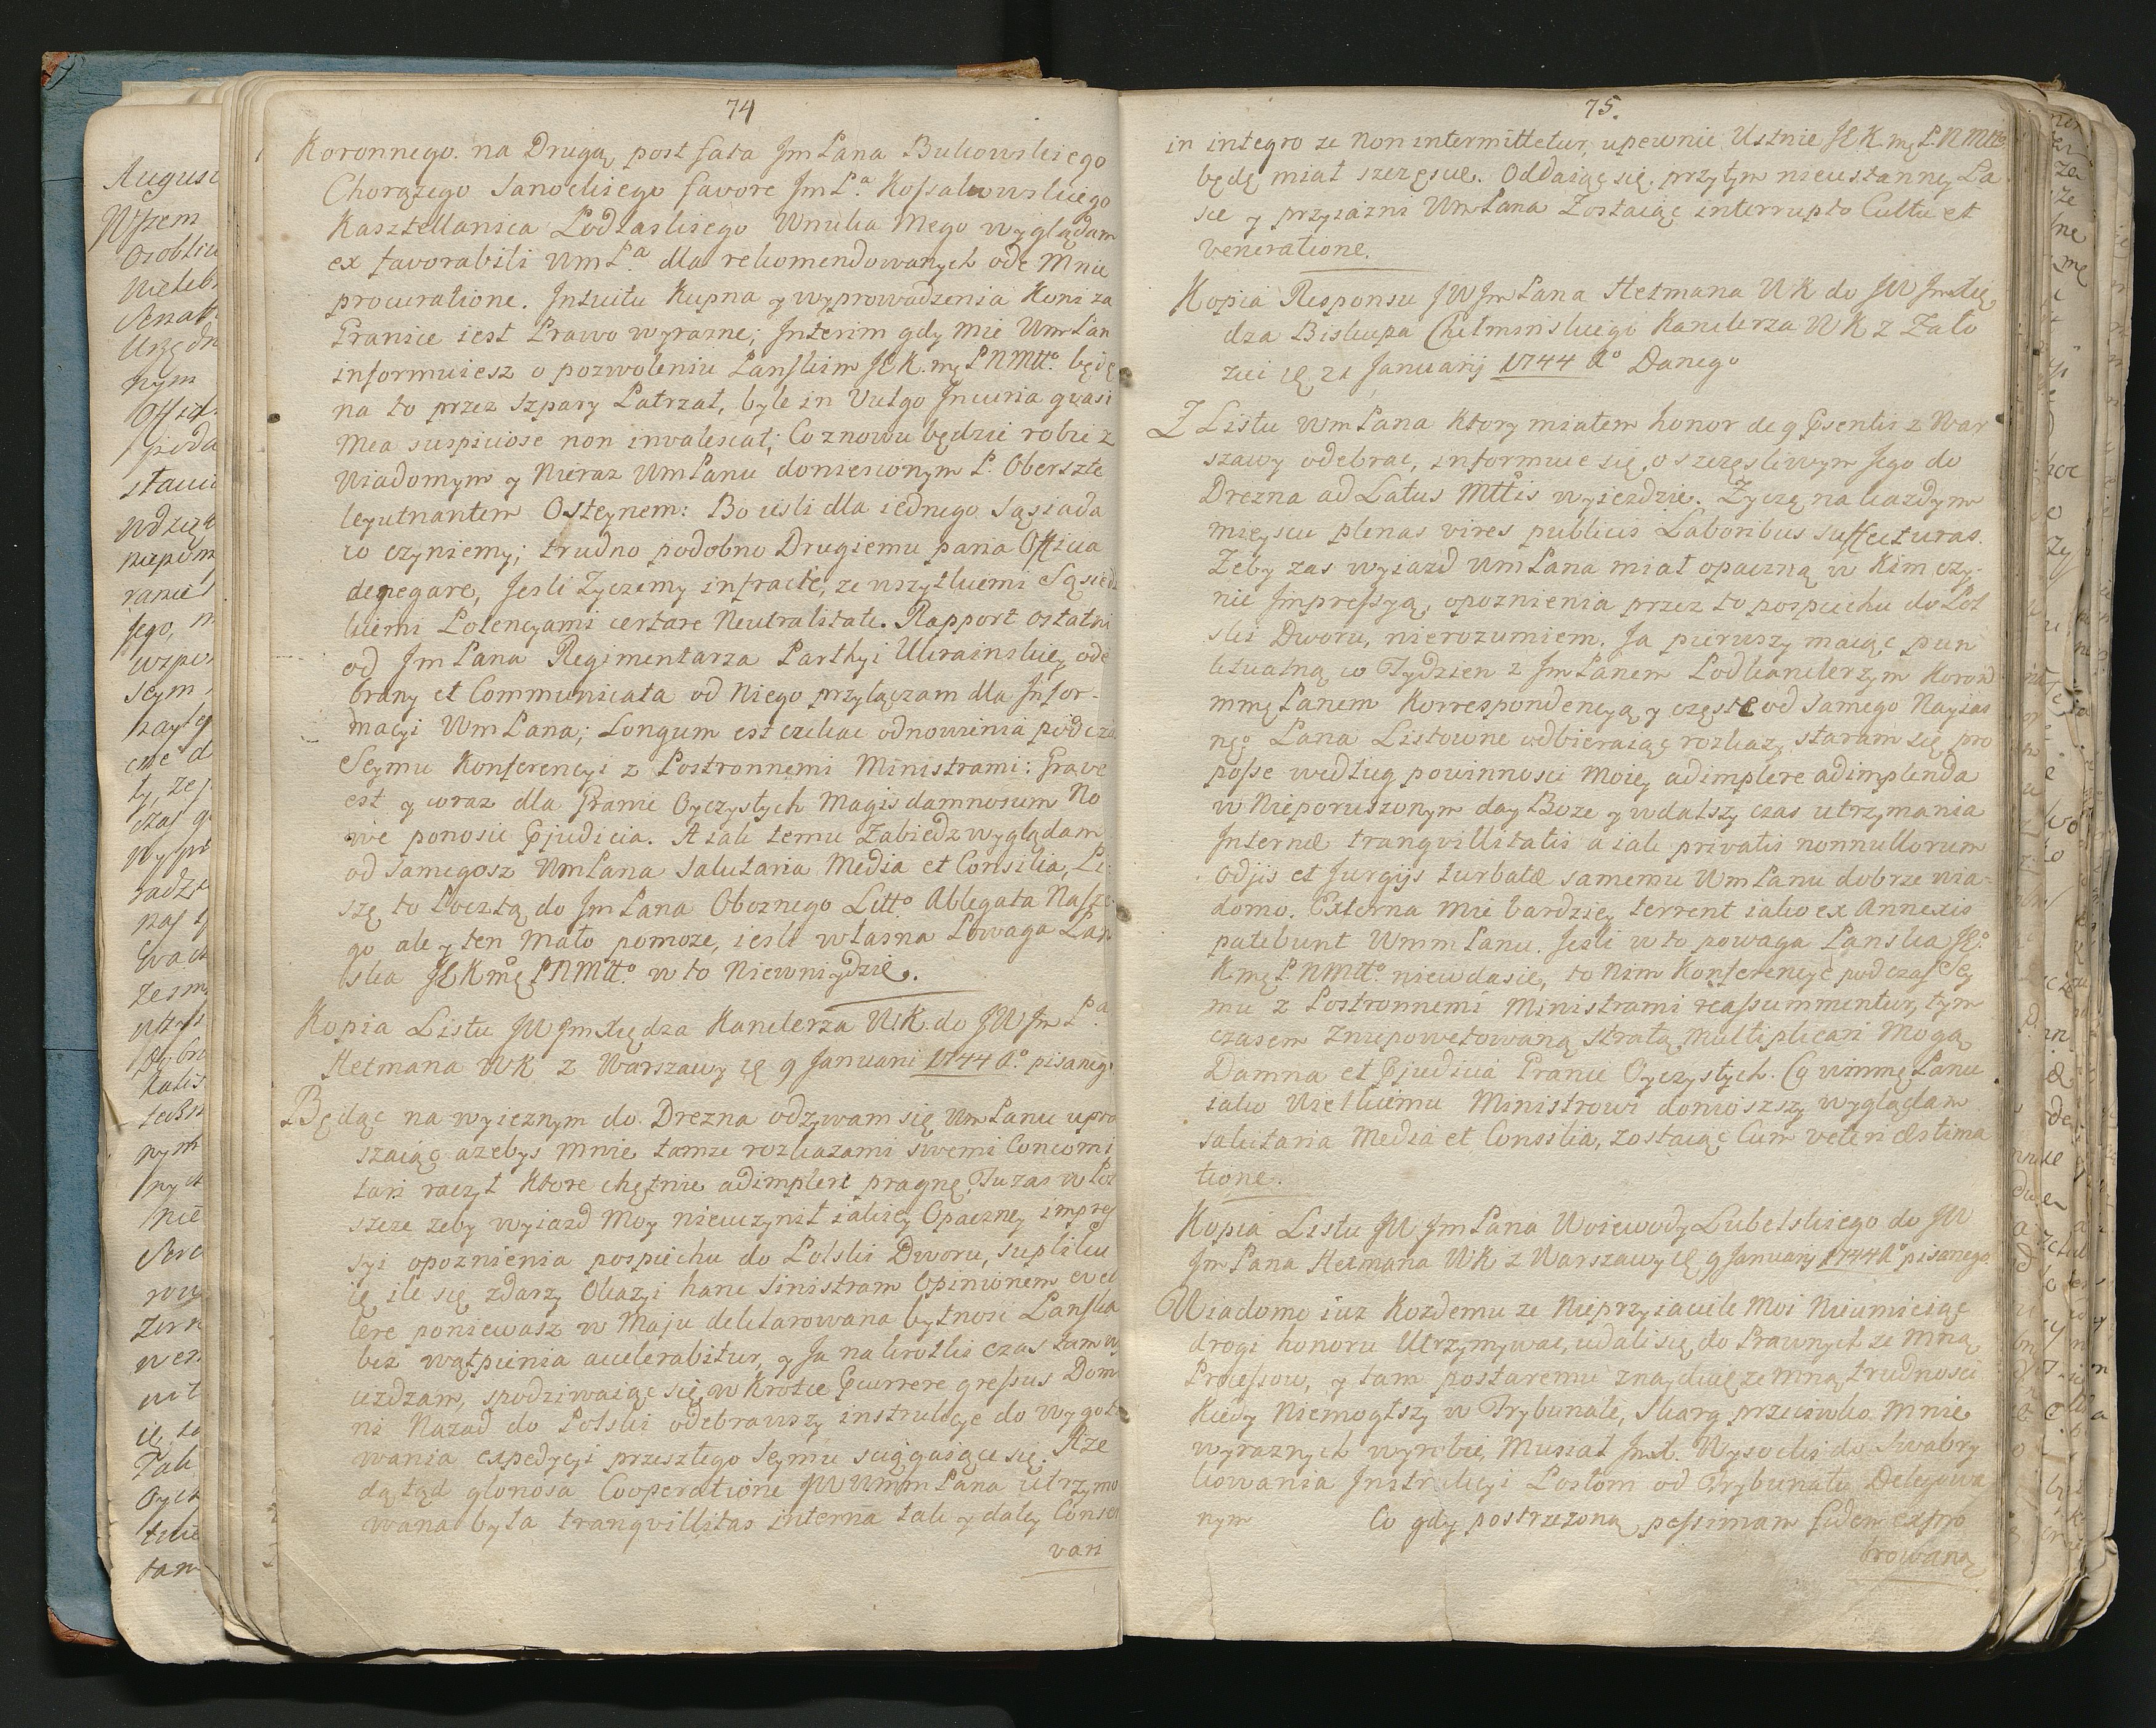 74
Koronnego. na Drugą post fata Jm Pana Bukowskiego
Chorążego Sanockiego favore Jm P.a Kossakowskiego
Kasztellanica Podlaskiego Wnuka Mego wyglądam
ex favorabili Wm P.a dla rekomendowanych ode Mnie
procuratione. Intuitu Kupna y wyprowadzenia Koni za
Granice iest Prawo wyrazne; Interim gdy mie Wm Pan
informuiesz o pozwoleniu Panskim JEK.mę PNMtto. będę
na to przez szpary Patrzał, byle in Vulgo Incuria quasi
mea suspiciose non invalescat; Co znowu będzie robic z
Wiadomym y Nieraz Wm Panu doniesionym P. Oberszte
leyutnantem Osteynem: Bo iesli dla iednego Sąsiada
co czyniemy; trudno podobno Drugiemu paria Officia
denegare, Jesli Zyczemy infracte, ze wszytkiemi Sąsied
kiemi Potencyami certare Neutralitate. Rapport ostatni
od Jm Pana Regimentarza Parthyi Ukrainskiey ode
brany et Communicata od Niego przyłączam dla Infor-
macyi Wm Pana; Longum est czekac odnowienia podcza
Seymu Konferencyi z Postronnemi Ministrami: Grave
est y coraz dla Granic Oyczystych Magis damnosum No
we ponosic Pjudicia. A iak temu Zabiedz wyglądam
od Samegosz Wm Pana Salutaria Media et Consilia, Pi:
szę to Pocztą do Jm Pana Oboznego Litto Ablegata Nasze
go ale y ten Mało pomoze, iesli własna Powaga Pan
ska JEKmę PNMtto. w to Niewniydzie.
Kopia Listu JW Jm Xiędza Kanclerza WK. do JW Jm P.a
Hetmana WK z Warszawy ię 9 Januarii 1744 Ao. pisaneg.
Będąc na wyieznym do Drezna odzywam się Wm Panu upra
szaiąc azebys mnie tamze rozkazami swemi Concomi
tari raczył Ktore chętnie adimplere pragnę, Tu zas w Pol
szcze zeby wyiazd Moy nieuczynił iakiey Opaczney impres
syi opoznienia pospiechu do Polski Dworu, supliku
ię ile się zdarzy Okazyi hanc Sinistram Opinionem evel
lere poniewasz w Maju deklarowana bytnosc Panska
bez wątpienia accelerabitur, y Ja na krotki czas tam w
uezdzam, spodziwaiąc się w Krotce Pcurrere gressus Domi
ni Nazad do Polski odebrawszy instrukcye do wygoto
wania expedycyi przeszłego Seymu sciągaiące się. Aze
dątąd gloriosa Cooperatione JW Wmm Pana utrzymo
wana była tranqvillitas interna tak y daley Conser
vari
75.
in integro ze Non intermittetur, upewnic Ustnie JE.K.mę P.NMtto
będę miał szczęscie. Oddaiąc się przytym nieustanney Ła
sce y przyiazni Wm Pana Zostaiąc interrupto Cultu et
veneratione.
Kopia Responsu JW Jm Pana Hetmana WK do JW Jm Xię
dza Biskupa Chełminskiego Kanclerza WK z Zało
ziec ię 21 Januarij 1744 Ao Danego
Z Listu Wm Pana Ktory miałem honor de 9 Psentis z War
szawy odebrac, informuie się o szczęsliwym Jego do
Drezna ad Latus Mttis wyiezdzie. Zyczę na kazdym
mieyscu plenas vires publicis Laboribus suffecturas.
Zeby zas wyiazd Wm Pana miał opaczną w Kim czy-
nic Impressyą, opoznienia przez to pospiechu do Pol
ski Dworu, nierozumiem. Ja pierwszy maiąc pun
ktualną co Tydzien z Jm Panem Podkanclerzym Koron
mmę Panem Korrespondencyą y częste od Samego Nayias
nęo Pana Listowne odbieraiąc rozkazy, staram się pro
posse według powinnosci moiey adimplere adimplenda
w Nieporuszonym day Boze y wdalszy czas utrzymania
Internæ tranqvillitatis a iak privatis nonnullorum
Odjis et Jurgijs turbatæ samemu Wm Panu dobrze wia-
domo. Externa mie bardziey terrent iako ex Annexis
patebunt Wmm Panu. Jesli w to powaga Panska JE.
Kmę P.NMtto. niewdasie, to Nim Konferencye podczas Sey
mu z Postronnemi Ministrami reassummentur, tym
czasem Zniepowetowaną stratą multiplicari Mogą
Damna et Pjudicia Granic Oyczystych. Co wmmę Panu
iako Wielkiemu Ministrowi doniosszy wyglądam
salutaria Media et Consilia, zostaiąc Cum veteri æstima
tione.
Kopia Listu JW Jm Pana Woiewody Lubelskiego do JW
Jm Pana Hetmana WK z Warszawy ię 9 Januarij 1744 Ao pisanego
Wiadomo iuz Kozdemu ze Nieprzyiaciele Moi Nieumieiąc
drogi honoru Utrzymywac, udali się do Prawnych ze mną
Processow, y tam postaremu znayduię ze mną trudnosci
Kiedy Niemogłszy w Trybunale, Skarg przeciwko Mnie
wyraznych wyrobic, Musiał Jmt. Wysocki do Swabry
kowania Instrukcyi Posłom od Trybunału Delegowa
nym Co gdy postrzezoną pessimam fidem expro
browaną